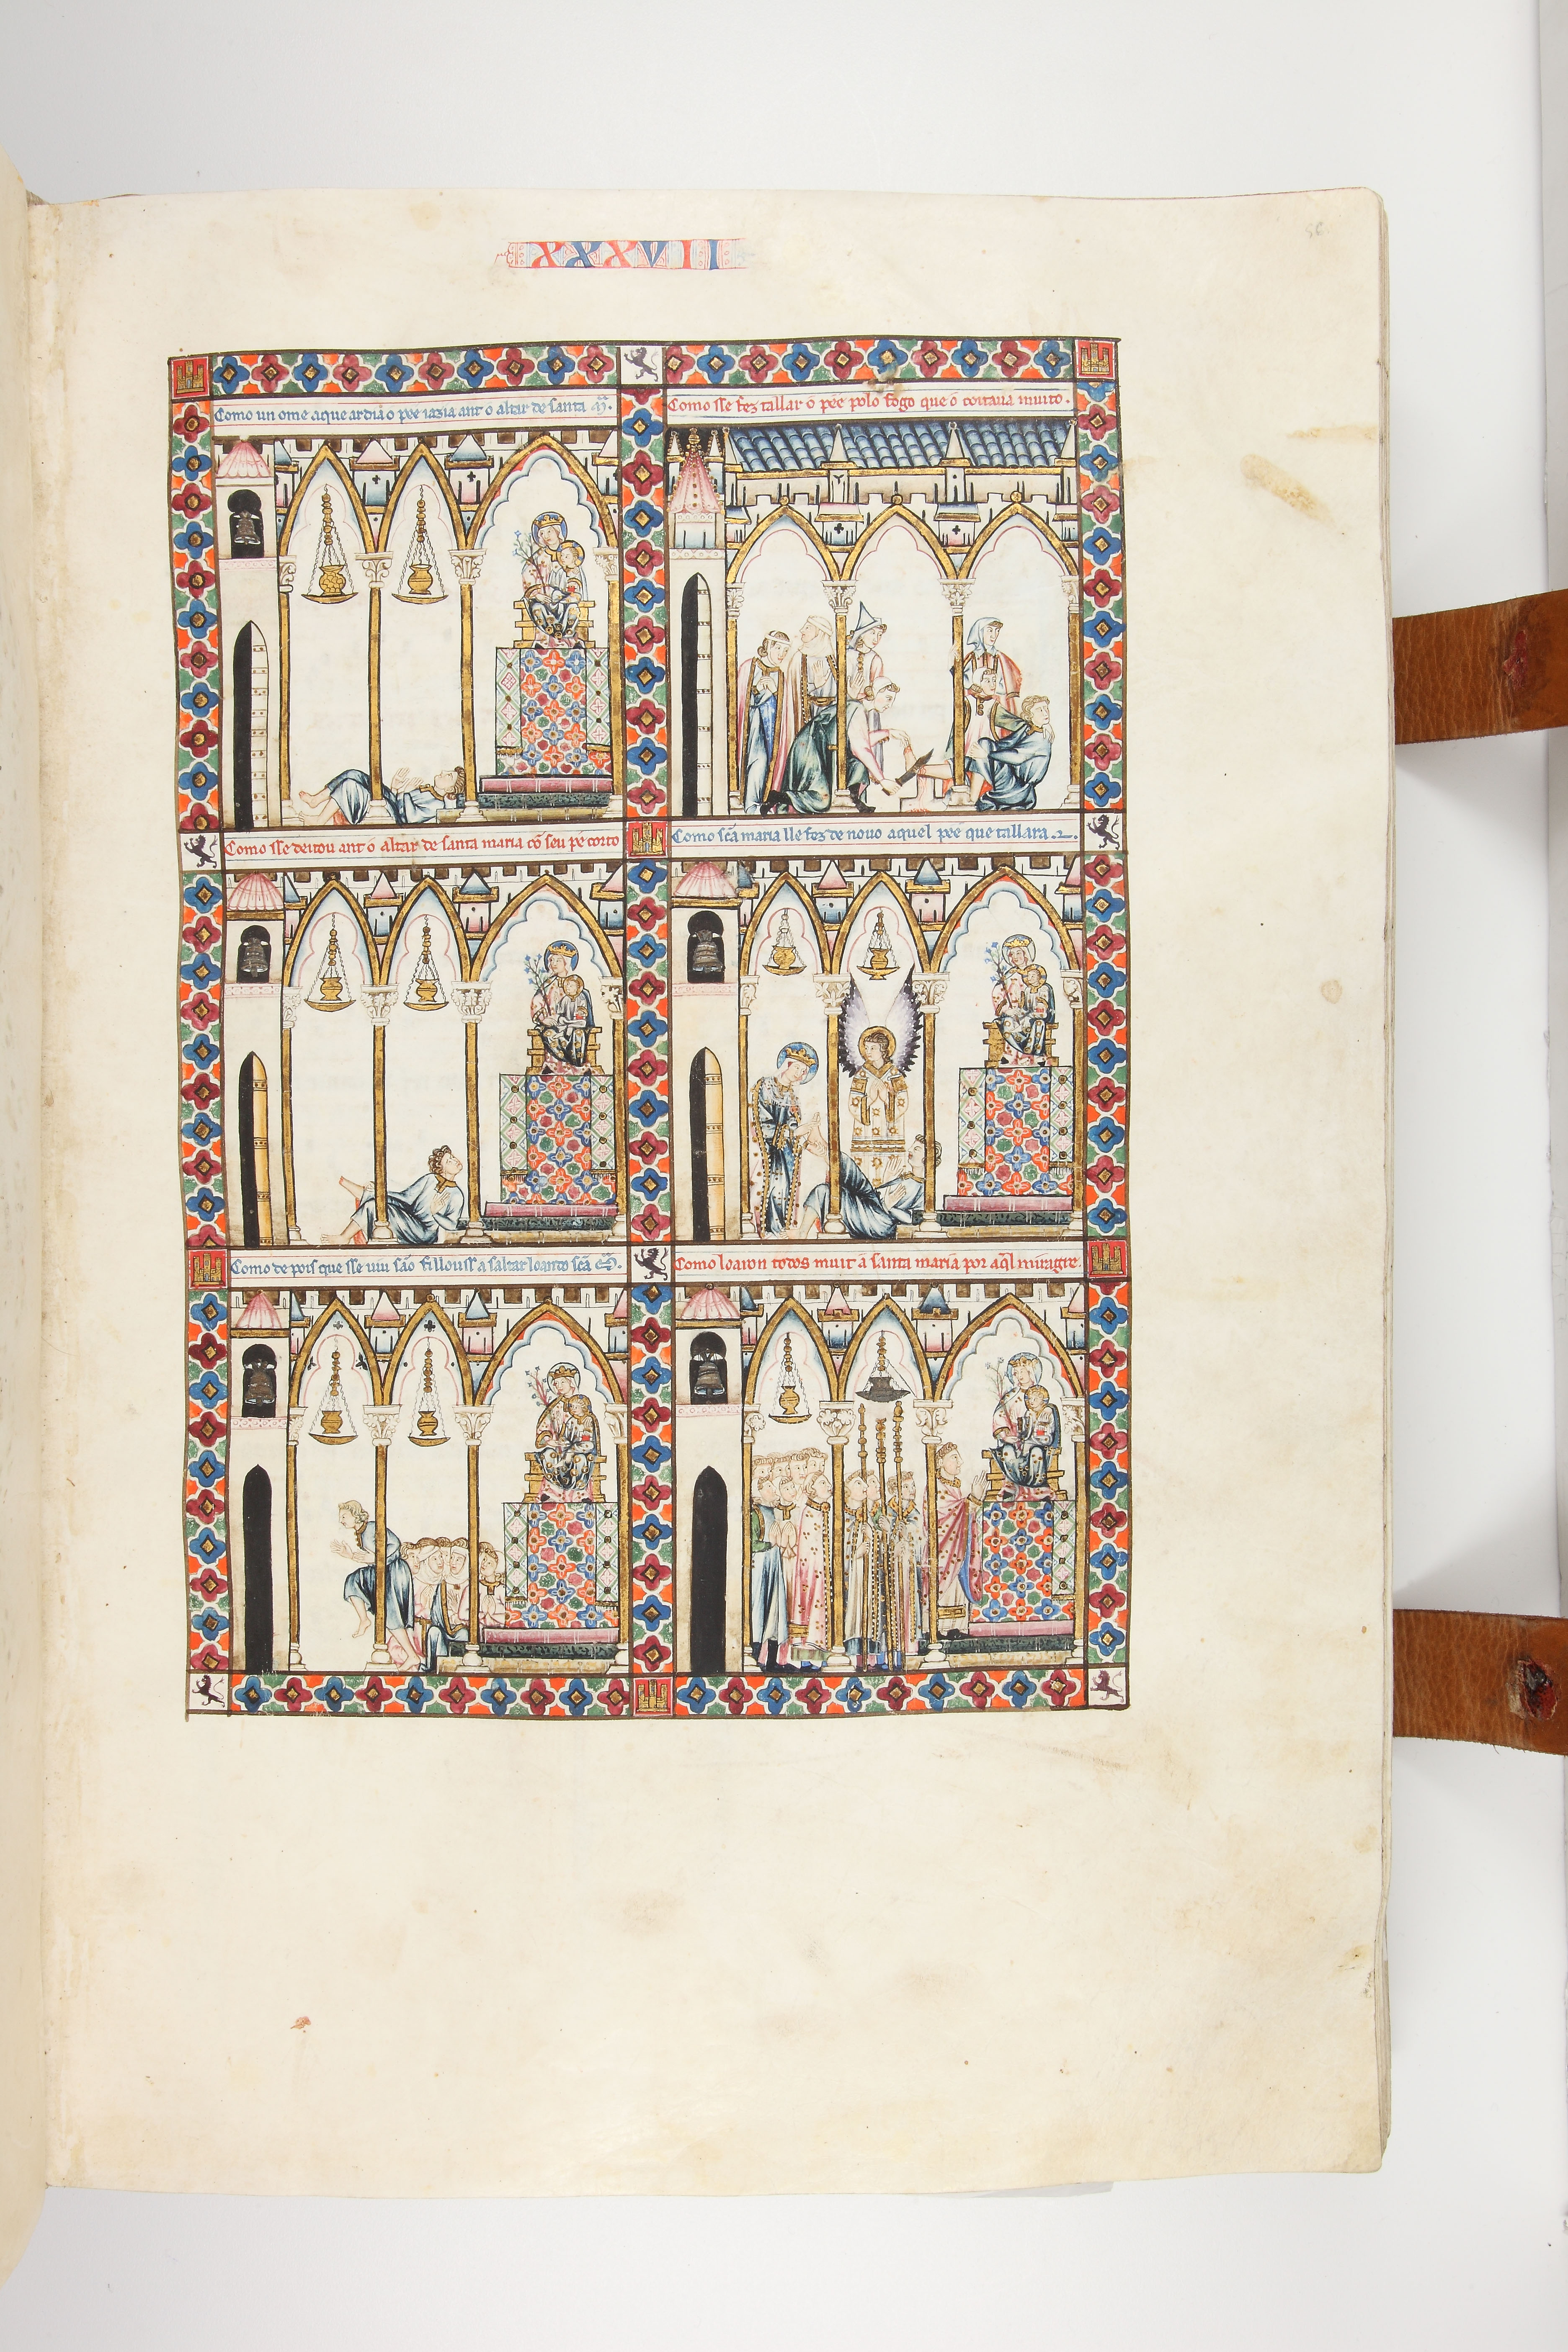 XXXVII
56
Como un ome a que ardia o pee iazia ant o altar de santa Mª.
Como sse fez tallar o pee polo fogo que o coitaua muito.
Como sse deitou ant o altar de santa maria cõ seu pe corto
Como scã maria lle fez de nouo aquel pee que tallara.
Como de pois que sse uiu são fillouss a saltar loando scã Mª.
Como loaron todos muit a santa maria por aql miragre.